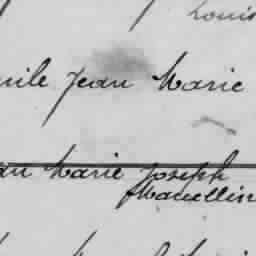 Louis
mile Jean Marie
an Marie Joseph
Marcellin